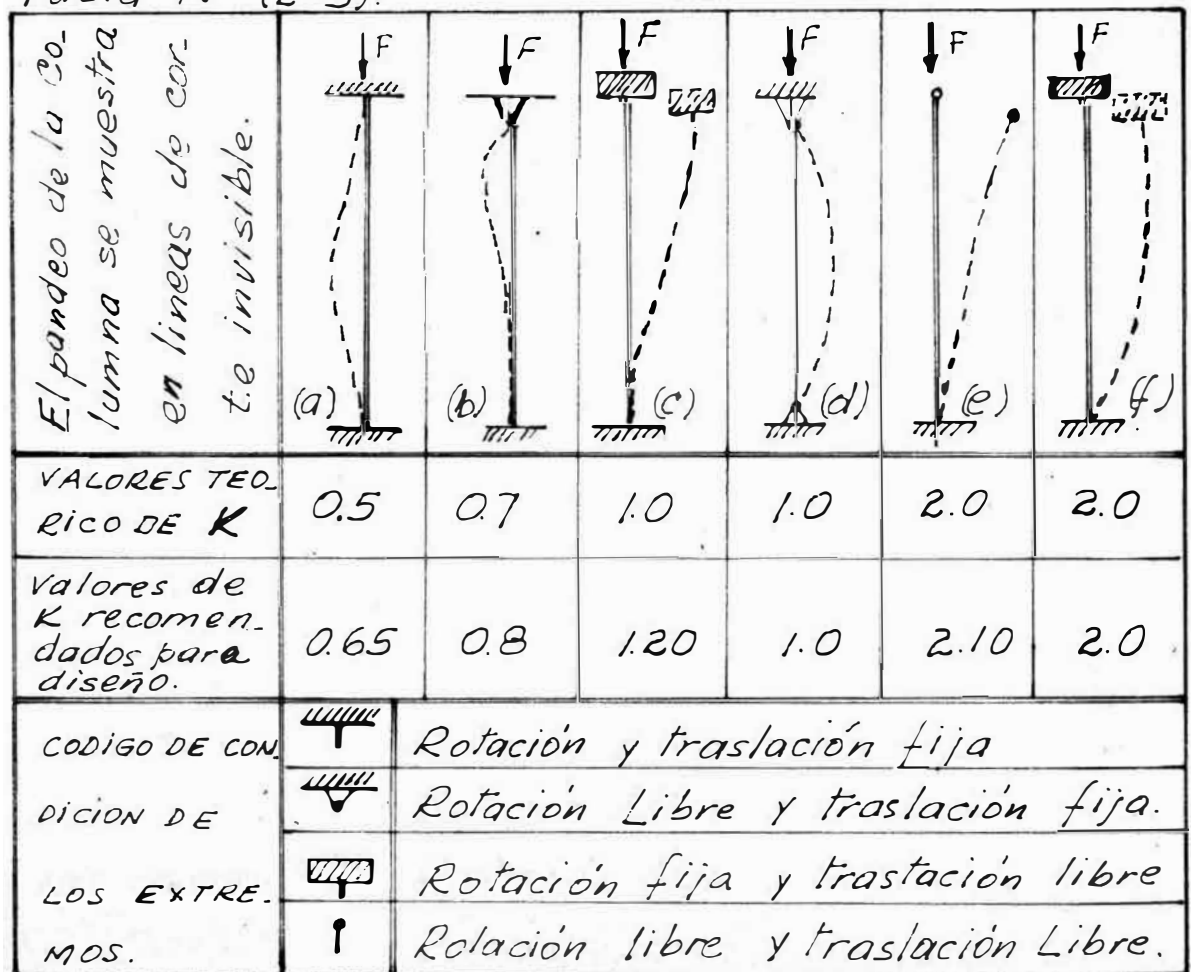 Tabla N° (2-3).
El pandeo de la Co_
lumna se muestra
en lineas de cor_
te invisible.
F F F F F F
(a) (b) (c) (d) (e) (f)
VALORES TEO_
RICO DE K
0.5 0.7 1.0 1.0 2.0 2.0
Valores de
K recomen_
dados para
diseño.
0.65 0.8 1.20 1.0 2.10 2.0
CODIGO DE CON_
DICION DE
LOS EXTRE_
MOS.
Rotación y traslación fija
Rotación Libre y traslación fija.
Rotación fija y trastación libre
Rolación libre y traslación Libre.